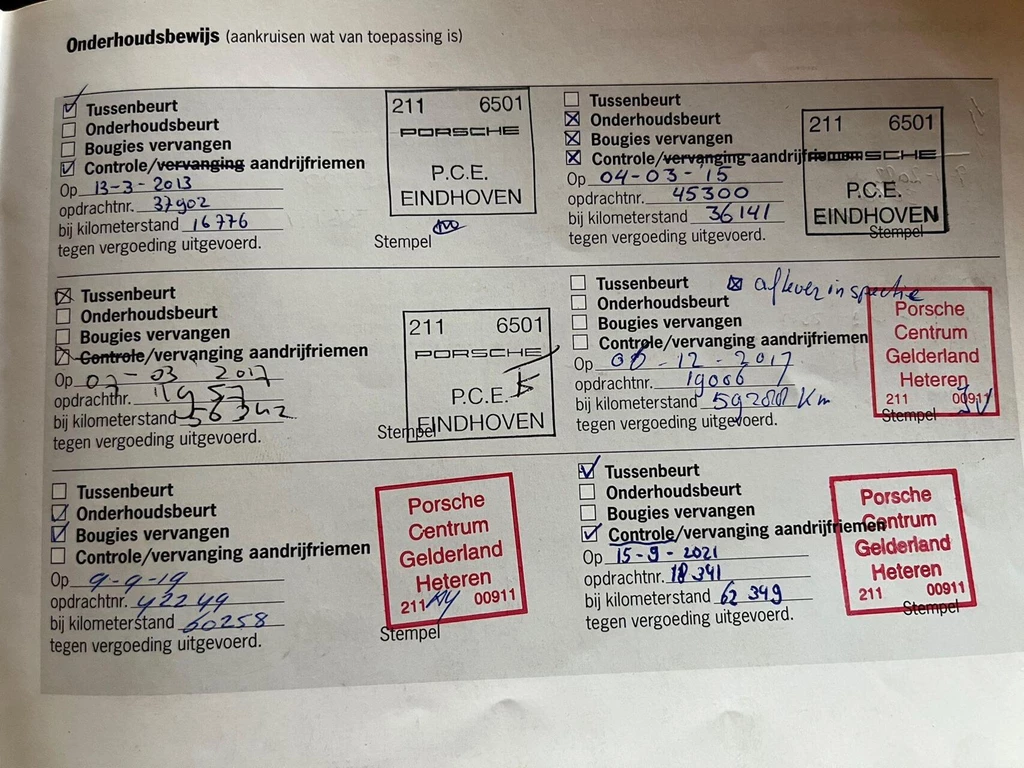 Onderhoudsbewijs (aankruisen wat van toepassing is)
Tussenbeurt
Onderhoudsbeurt
Bougies vervangen
Controle/vervanging aandrijfriemen
Op 13-3-2013
opdrachtnr. 37902
bij kilometerstand 16776
tegen vergoeding uitgevoerd.
211 6501
PORSCHE
P.C.E.
EINDHOVEN
Stempel
Tussenbeurt
Onderhoudsbeurt
Bougies vervangen
Controle/vervanging aandrijfriemen
Op 04-03-'15
opdrachtnr. 45300
bij kilometerstand 36141
tegen vergoeding uitgevoerd.
211 6501
PORSCHE
P.C.E.
EINDHOVEN
Stempel
Tussenbeurt
Onderhoudsbeurt
Bougies vervangen
Controle/vervanging aandrijfriemen
Op 02-03 2017
opdrachtnr.
bij kilometerstand 56342
tegen vergoeding uitgevoerd.
211 6501
PORSCHE
P.C.E.
EINDHOVEN
Stempel
Tussenbeurt afleverinspectie
Onderhoudsbeurt
Bougies vervangen
Controle/vervanging aandrijfriemen
Op 12-2017
opdrachtnr. 19006
bij kilometerstand Km
tegen vergoeding uitgevoerd.
Porsche
Centrum
Gelderland
Heteren
211 00911
Stempel
Tussenbeurt
Onderhoudsbeurt
Bougies vervangen
Controle/vervanging aandrijfriemen
Op 9-9-19
opdrachtnr. 42249
bij kilometerstand 60258
tegen vergoeding uitgevoerd.
Porsche
Centrum
Gelderland
Heteren
211 00911
Stempel
Tussenbeurt
Onderhoudsbeurt
Bougies vervangen
Controle/vervanging aandrijfriemen
Op 15-9-2021
opdrachtnr. 18341
bij kilometerstand 62349
tegen vergoeding uitgevoerd.
Porsche
Centrum
Gelderland
Heteren
211 00911
Stempel